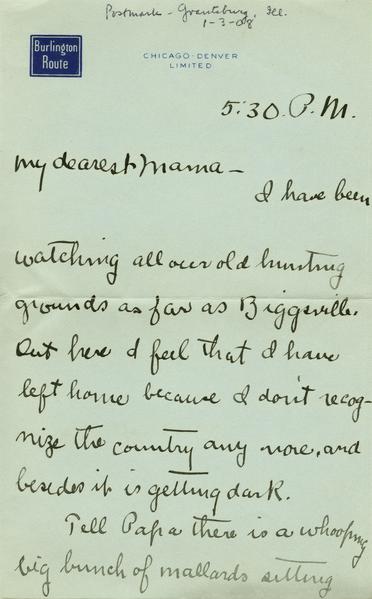 Postmark - Grantsburg, Ill.
1-3-08
Burlington
Route
CHICAGO-DENVER
LIMITED
5:30. P.M.
My dearest Mama -
I have been
watching all our old hunting
grounds as far as Biggsville.
Out here I feel that I have
left home because I don't recog-
nize the country any more, and
besides it is getting dark.
Tell Papa there is a whooping
big bunch of mallards sitting